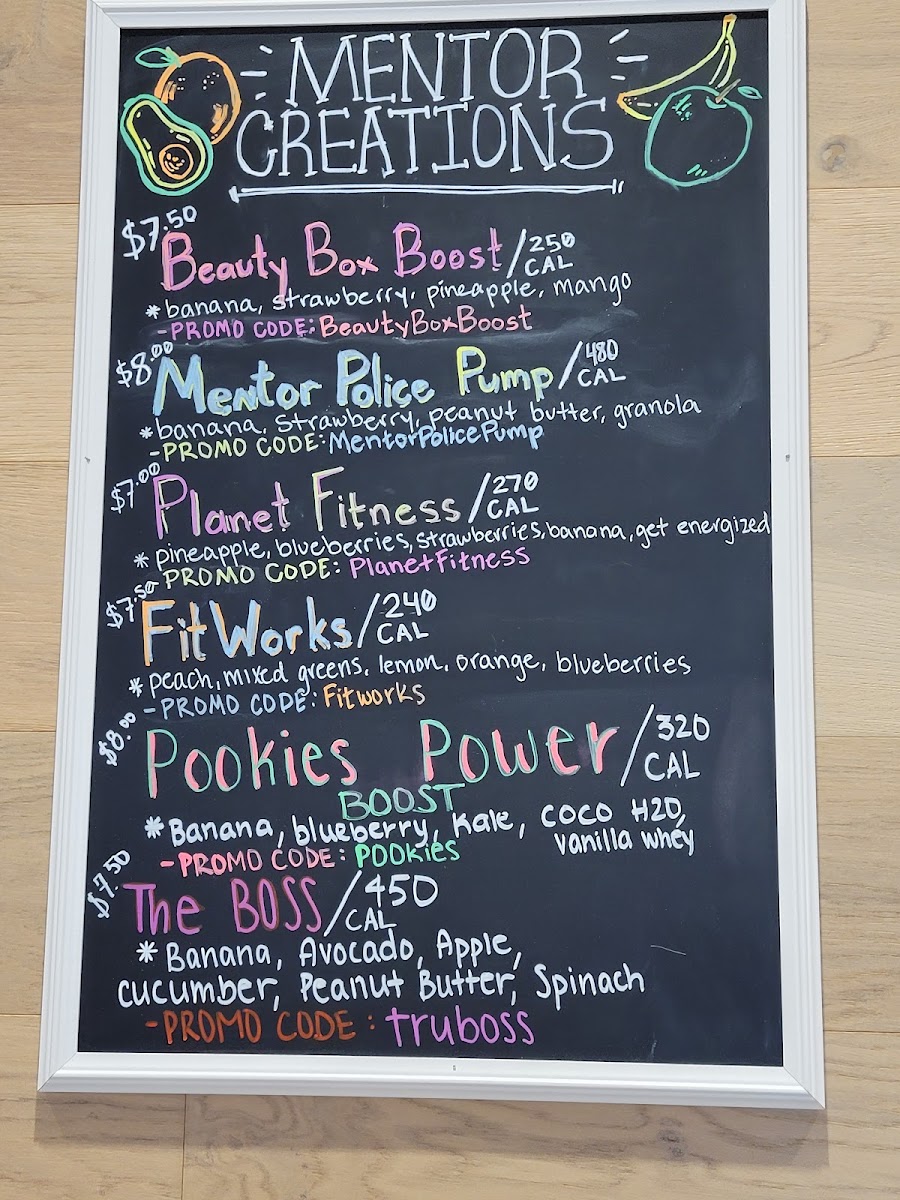 MENTOR
CREATIONS
$7.50
Beauty Box Boost/250 CAL
*banana, strawberry, pineapple, mango
-PROMO CODE: BeautyBoxBoost
$8.00
Mentor Police Pump/480 CAL
*banana, strawberry, peanut butter, granola
-PROMO CODE: MentorPolicePump
$7.00
Planet Fitness/270 CAL
* pineapple, blueberries, strawberries, banana, get energized
-PROMO CODE: PlanetFitness
$7.50
FitWorks/240 CAL
* peach, mixed greens, lemon, orange, blueberries
-PROMO CODE: Fitworks
$8.00
Pookies Power/320 CAL
BOOST
*Banana, blueberry, kale, COCO H2O,
vanilla whey
-PROMO CODE: POOKIES
$7.50
The BOSS/450 CAL
* Banana, Avocado, Apple,
cucumber, Peanut Butter, Spinach
-PROMO CODE: truboss